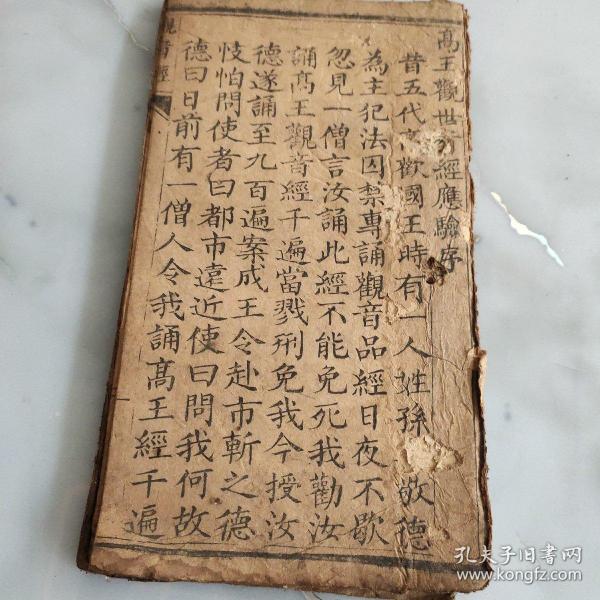 高王觀世音經應驗序
昔五代高歡國王時有一人姓孫 敬德
為主犯法囚禁專誦觀音品經日夜不歇
忽見一僧言汝誦此經不能免死我勸汝
誦髙王觀音經千遍當戮刑免我今授汝
德遂誦至九百遍案成王令赴市斬之德
忮怕問使者曰都市遠近使曰問我何故
德曰日前有一僧人令我誦髙王經千遍
觀音經
孔夫子旧书网
www.kongfz.com